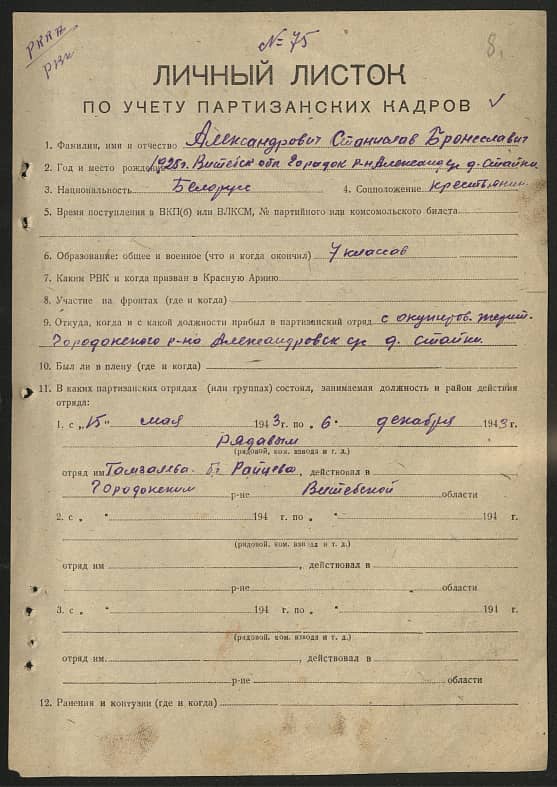 РККА
РВК
№ 75
8.
ЛИЧНЫЙ ЛИСТОК
ПО УЧЕТУ ПАРТИЗАНСКИХ КАДРОВ
1. Фамилия, имя и отчество Александрович Станислав Брониславич
2. Год и место рождения 1925 г. Витебск обл Городок р-н Александ с/с д. Стайки
3. Национальность Белорус 4. Соцположение крестьянин
5. Время поступления в ВКП(б) или ВЛКСМ, № партийного или комсомольского билета
6. Образование: общее и военное (что и когда окончил) 7 классов
7. Каким РВК и когда призван в Красную Армию
8. Участие на фронтах (где и когда)
9. Откуда, когда и с какой должности прибыл в партизанский отряд с окупиров. террит.
Городокского р-на Александровск с/с д. Стайки
10. Был ли в плену (где и когда)
11. В каких партизанских отрядах (или группах) состоял, занимаемая должность и район действия
отряда:
1. с „15" мая 1943 г. по „6" декабря 1943 г.
рядавым
(рядовой, ком. взвода и т. д.)
отряд им. бр Райцева, действовал в
Городокском р-не Витебской области
2. с „ " 194 г. по „ " 194 г.
(рядовой, ком. взвода и т. д.)
отряд им , действовал в
р-не области
3. с „ " 194 г. по „ " 194 г.
(рядовой, ком. взвода и т. д.)
отряд им. , действовал в
р-не области
12. Ранения и контузии (где и когда)